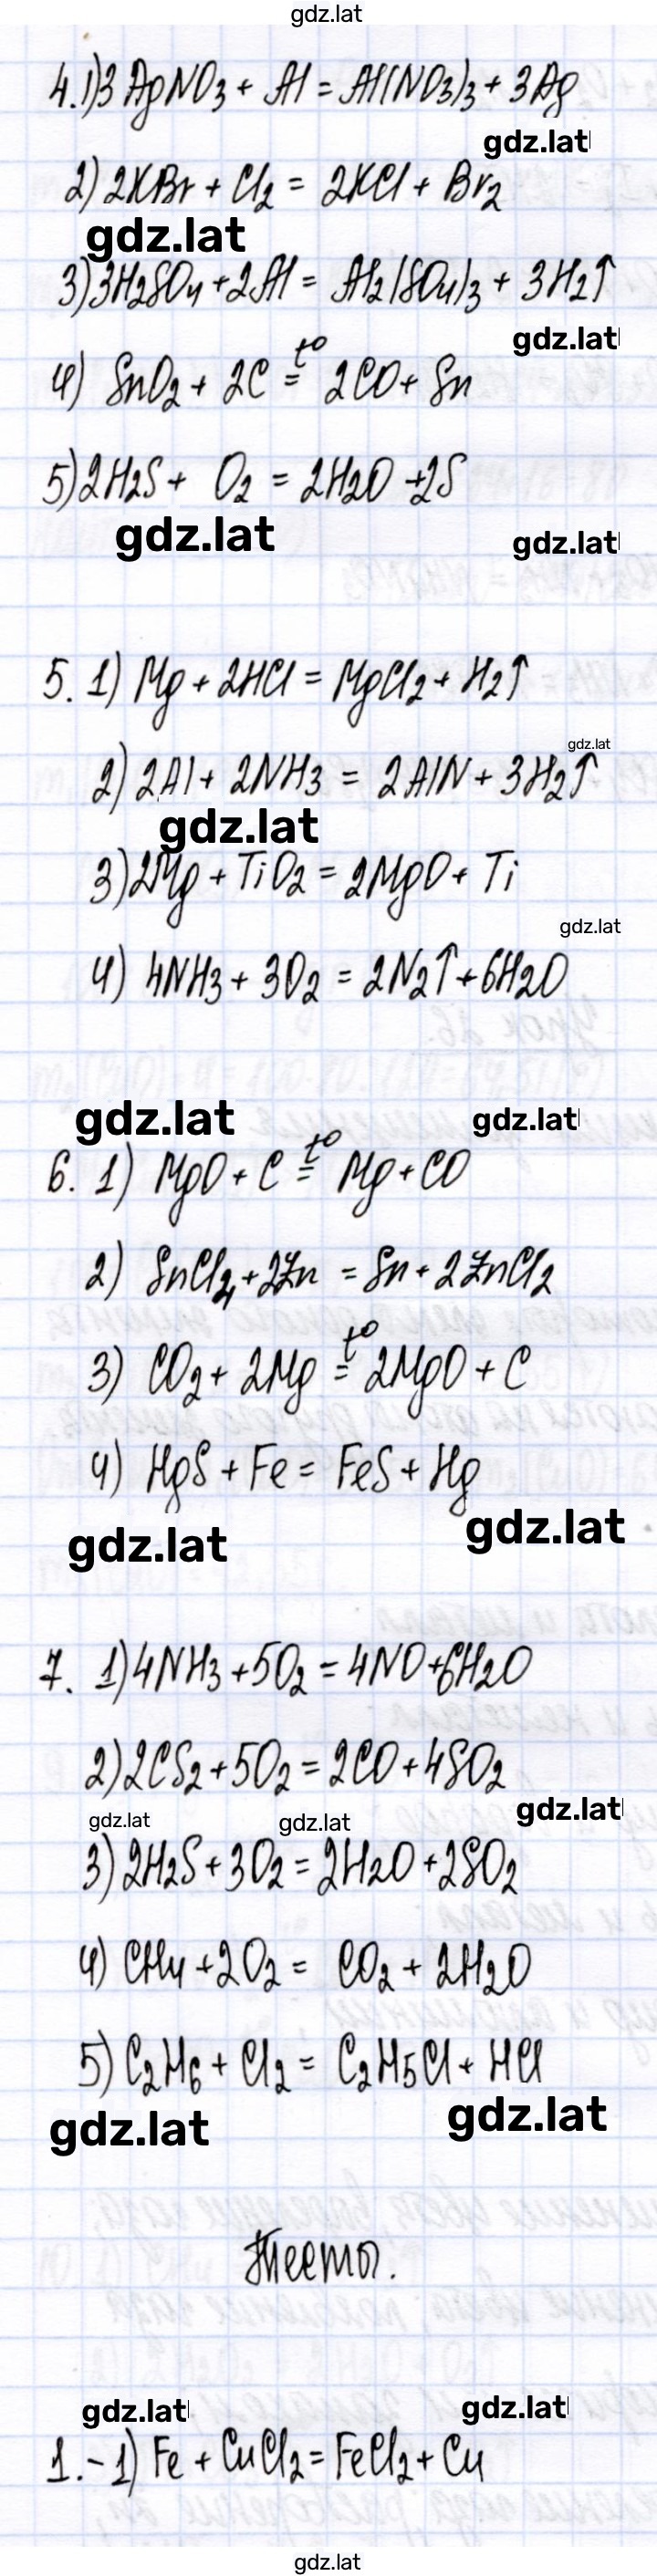 gdz.lat
4. 1) 3AgNO3 + Al = Al(NO3)3 + 3Ag
gdz.lat
2) 2KBr + Cl2 = 2KCl + Br2
gdz.lat
3) 3H2SO4 + 2Al = Al2(SO4)3 + 3H2↑
gdz.lat
4) SnO2 + 2C = t° 2CO + Sn
5) 2H2S + O2 = 2H2O + 2S
gdz.lat gdz.lat
5. 1) Mg + 2HCl = MgCl2 + H2↑
gdz.lat
2) 2Al + 2NH3 = 2AlN + 3H2↑
gdz.lat
3) 2Mg + TiO2 = 2MgO + Ti
gdz.lat
4) 4NH3 + 3O2 = 2N2↑ + 6H2O
gdz.lat gdz.lat
6. 1) MgO + C = t° Mg + CO
2) SnCl4 + 2Zn = Sn + 2ZnCl2
3) CO2 + 2Mg = t° 2MgO + C
4) HgS + Fe = FeS + Hg
gdz.lat gdz.lat
7. 1) 4NH3 + 5O2 = 4NO + 6H2O
2) 2CS2 + 5O2 = 2CO + 4SO2
gdz.lat gdz.lat gdz.lat
3) 2H2S + 3O2 = 2H2O + 2SO2
4) CH4 + 2O2 = CO2 + 2H2O
5) C2H6 + Cl2 = C2H5Cl + HCl
gdz.lat gdz.lat
Тесты.
gdz.lat gdz.lat
1. - 1) Fe + CuCl2 = FeCl2 + Cu
gdz.lat